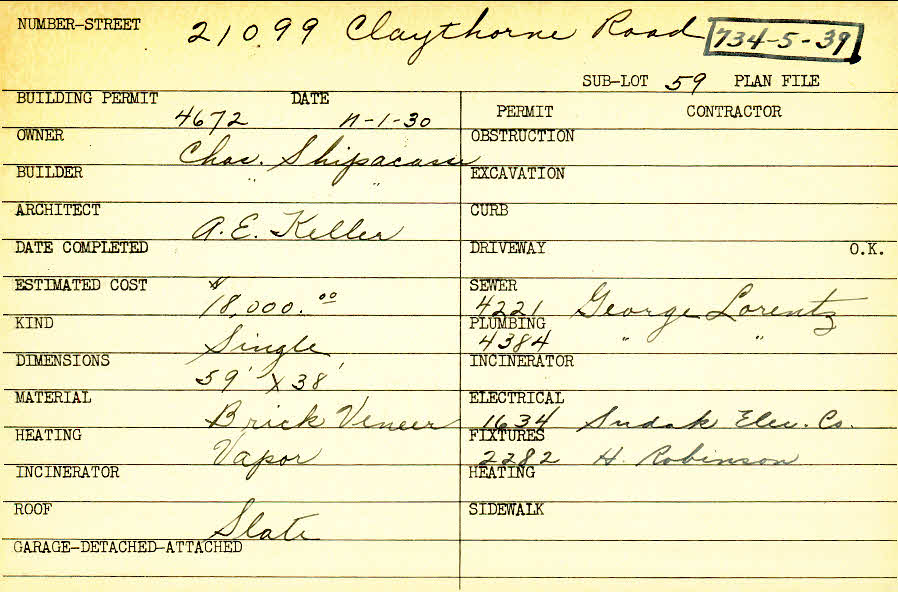 NUMBER-STREET 21099 Claythorne Road 734-5-39
SUB-LOT 59 PLAN FILE
BUILDING PERMIT 4672 DATE 11-1-30
OWNER Chas. Shipacasse
BUILDER " "
ARCHITECT A.E. Keller
DATE COMPLETED
ESTIMATED COST $18,000.00
KIND Single
DIMENSIONS 59' x 38'
MATERIAL Brick Veneer
HEATING Vapor
INCINERATOR
ROOF Slate
GARAGE-DETACHED-ATTACHED
PERMIT CONTRACTOR
OBSTRUCTION
EXCAVATION
CURB
DRIVEWAY O.K.
SEWER 4221 George Lorentz
PLUMBING 4384 " "
INCINERATOR
ELECTRICAL 1634 Sudak Elec. Co.
FIXTURES 2282 H. Robinson
HEATING
SIDEWALK